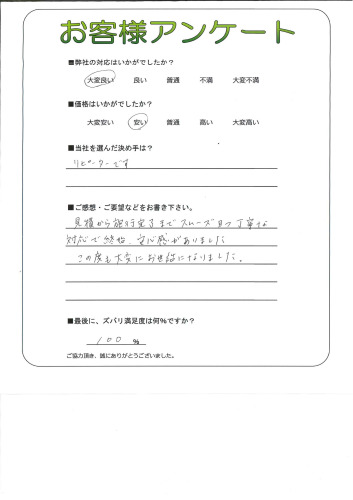 お客様アンケート
■弊社の対応はいかがでしたか？
大変良い 良い 普通 不満 大変不満
■価格はいかがでしたか？
大変安い 安い 普通 高い 大変高い
■当社を選んだ決め手は？
リピーターです
■ご感想・ご要望などをお書き下さい。
見積から施行完了までスムーズ且つ丁寧な
対応で終始、安心感がありました
この度も大変にお世話になりました。
■最後に、ズバリ満足度は何％ですか？
100 ％
ご協力頂き、誠にありがとうございました。